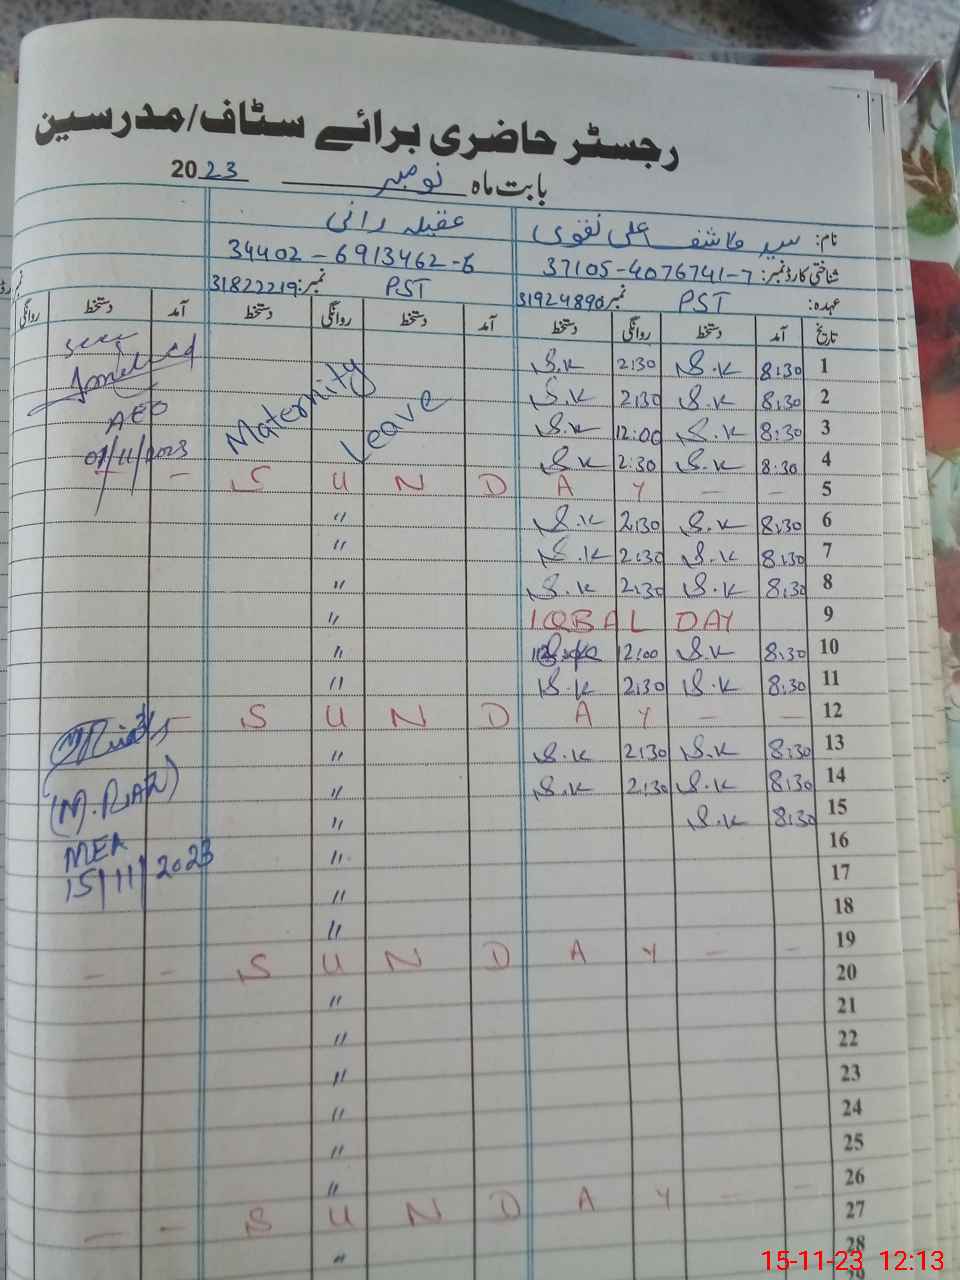 رجسٹر حاضری برائے سٹاف/مدرسین
بابت ماہ نومبر 2023
نام: سید کاشف علی نقوی عقیلہ رانی
شناختی کارڈ نمبر: 37105-4076741-7 34402-6913462-6
عہدہ: PST نمبر 31924890 PST نمبر: 31822219
تاریخ آمد دستخط روانگی دستخط آمد دستخط روانگی دستخط آمد دستخط روانگی
1 8:30 S.K 2:30 S.K
2 8:30 S.K 2:30 S.K
3 8:30 S.K 12:00 S.K
4 8:30 S.K 2:30 S.K
Maternity Leave
AEO
01/11/2023
5 - - S U N D A Y - -
6 8:30 S.K 2:30 S.K "
7 8:30 S.K 2:30 S.K "
8 8:30 S.K 2:30 S.K "
9 IQBAL DAY "
10 8:30 S.K 12:00 "
11 8:30 S.K 2:30 S.K "
12 - S U N D A Y - -
13 8:30 S.K 2:30 S.K "
14 8:30 S.K 2:30 S.K "
15 8:30 S.K "
(M. RIAZ)
MEA
15/11/2023
16 "
17 "
18 "
19 - - S U N D A Y - -
20 "
21 "
22 "
23 "
24 "
25 "
26 - - S U N D A Y - -
27 "
28
29
15-11-23 12:13